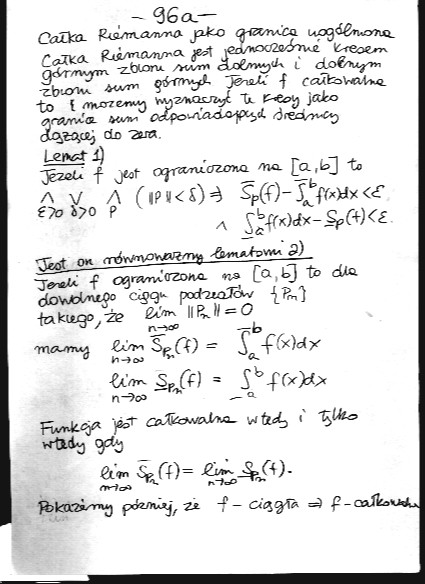 – 96a –
Całka Riemanna jako granica uogólniona
Całka Riemanna jest jednocześnie kresem
górnym zbioru sum dolnych i dolnym
zbioru sum górnych. Jeżeli f całkowalna
to możemy wyznaczyć te kresy jako
granice sum odpowiadających średnicy
dążącej do zera.
Lemat 1)
Jeżeli f jest ograniczona na [a,b] to
∧ ε>0 ∨ δ>0 ∧ P (‖P‖<δ) ⇒ S̅_P(f) − ∫̅_a^b f(x)dx < ε
∧ ∫̲_a^b f(x)dx − S̲_P(f) < ε.
Jest on równoważny lematowi 2)
Jeżeli f ograniczona na [a,b] to dla
dowolnego ciągu podziałów {P_n}
takiego, że lim_{n→∞} ‖P_n‖ = 0
mamy lim_{n→∞} S̅_{P_n}(f) = ∫̅_a^b f(x)dx
lim_{n→∞} S̲_{P_n}(f) = ∫̲_a^b f(x)dx
Funkcja jest całkowalna wtedy i tylko
wtedy gdy
lim_{n→∞} S̅_{P_n}(f) = lim_{n→∞} S̲_{P_n}(f).
Pokażemy później, że f – ciągła ⇒ f – całkowalna